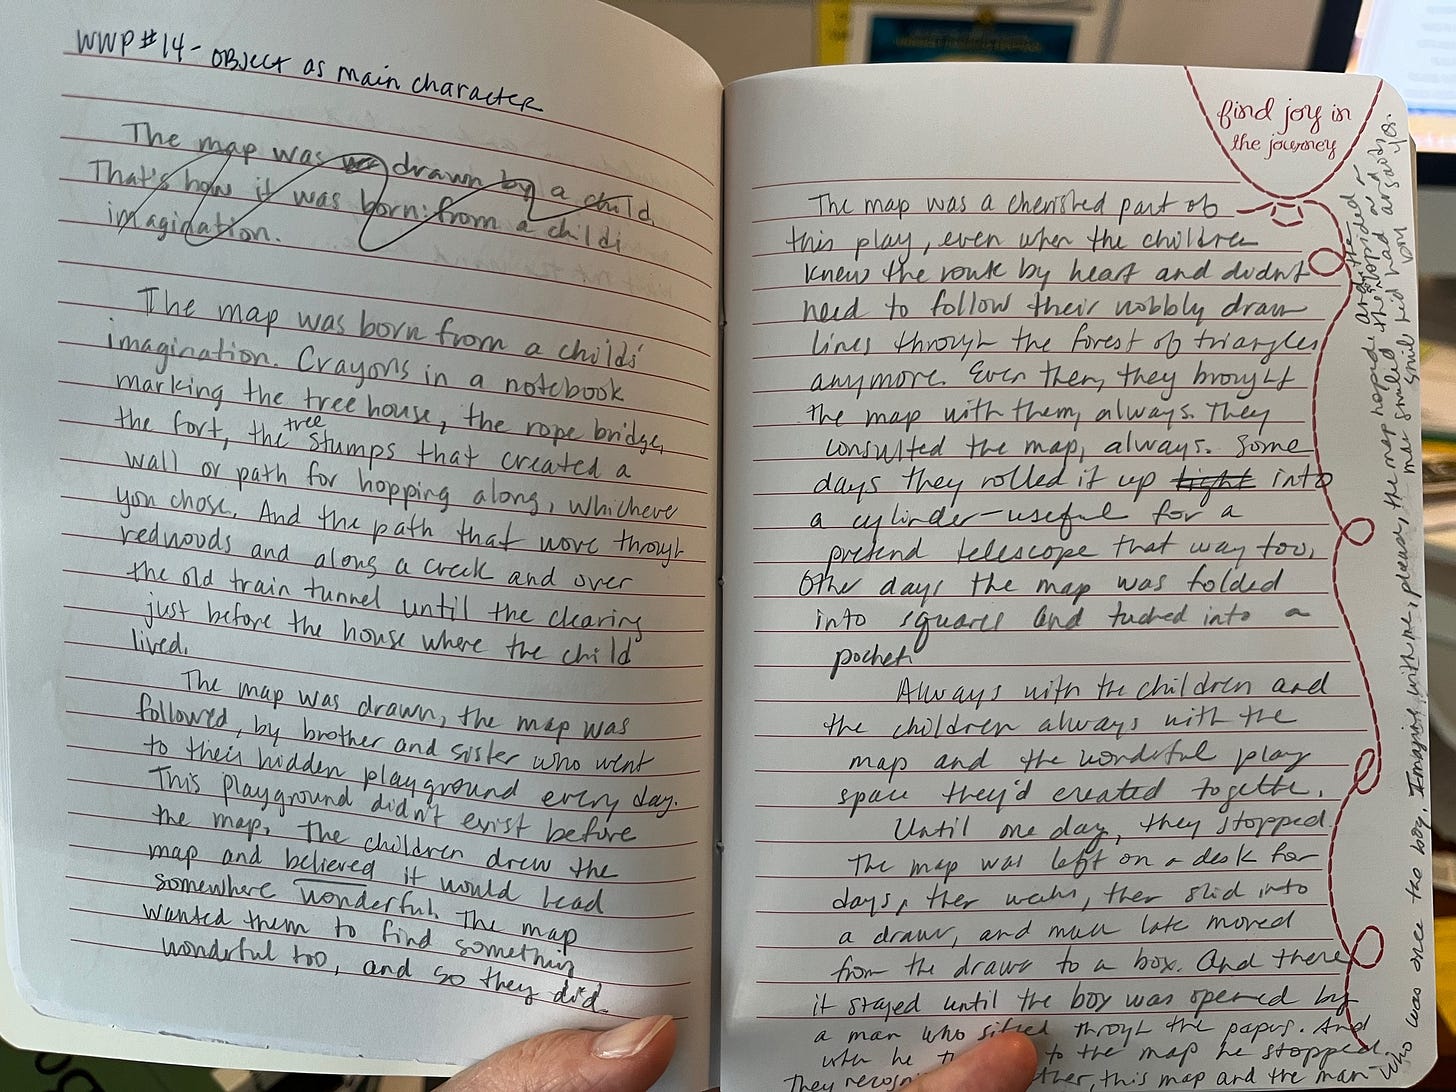 WWP #14 - OBJECT as main character
The map was drawn by a child.
That's how it was born: from a childs
imagination.
The map was born from a childs'
imagination. Crayons in a notebook
marking the tree house, the rope bridge,
the fort, the tree stumps that created a
wall or path for hopping along, whichever
you chose. And the path that wove through
redwoods and along a creek and over
the old train tunnel until the clearing
just before the house where the child
lived.
The map was drawn, the map was
followed, by brother and sister who went
to their hidden playground every day.
This playground didn't exist before
the map. The children drew the
map and believed it would lead
somewhere wonderful. The map
wanted them to find something
wonderful too, and so they did.
find joy in
the journey
The map was a cherished part of
this play, even when the children
knew the route by heart and didn't
need to follow their wobbly drawn
lines through the forest of triangles
anymore. Even then, they brought
the map with them, always. They
consulted the map, always. Some
days they rolled it up tight into
a cylinder - useful for a
pretend telescope that way too.
Other days the map was folded
into squares and tucked into a
pocket.
Always with the children and
the children always with the
map and the wonderful play
space they'd created together.
Until one day, they stopped.
The map was left on a desk for
days, then weeks, then slid into
a drawer, and much later moved
from the drawer to a box. And there
it stayed until the box was opened by
a man who sifted through the papers. And
when he to the map he stopped.
They this map and the man
who was once the boy. Imagine with me, please, the map
man smiled